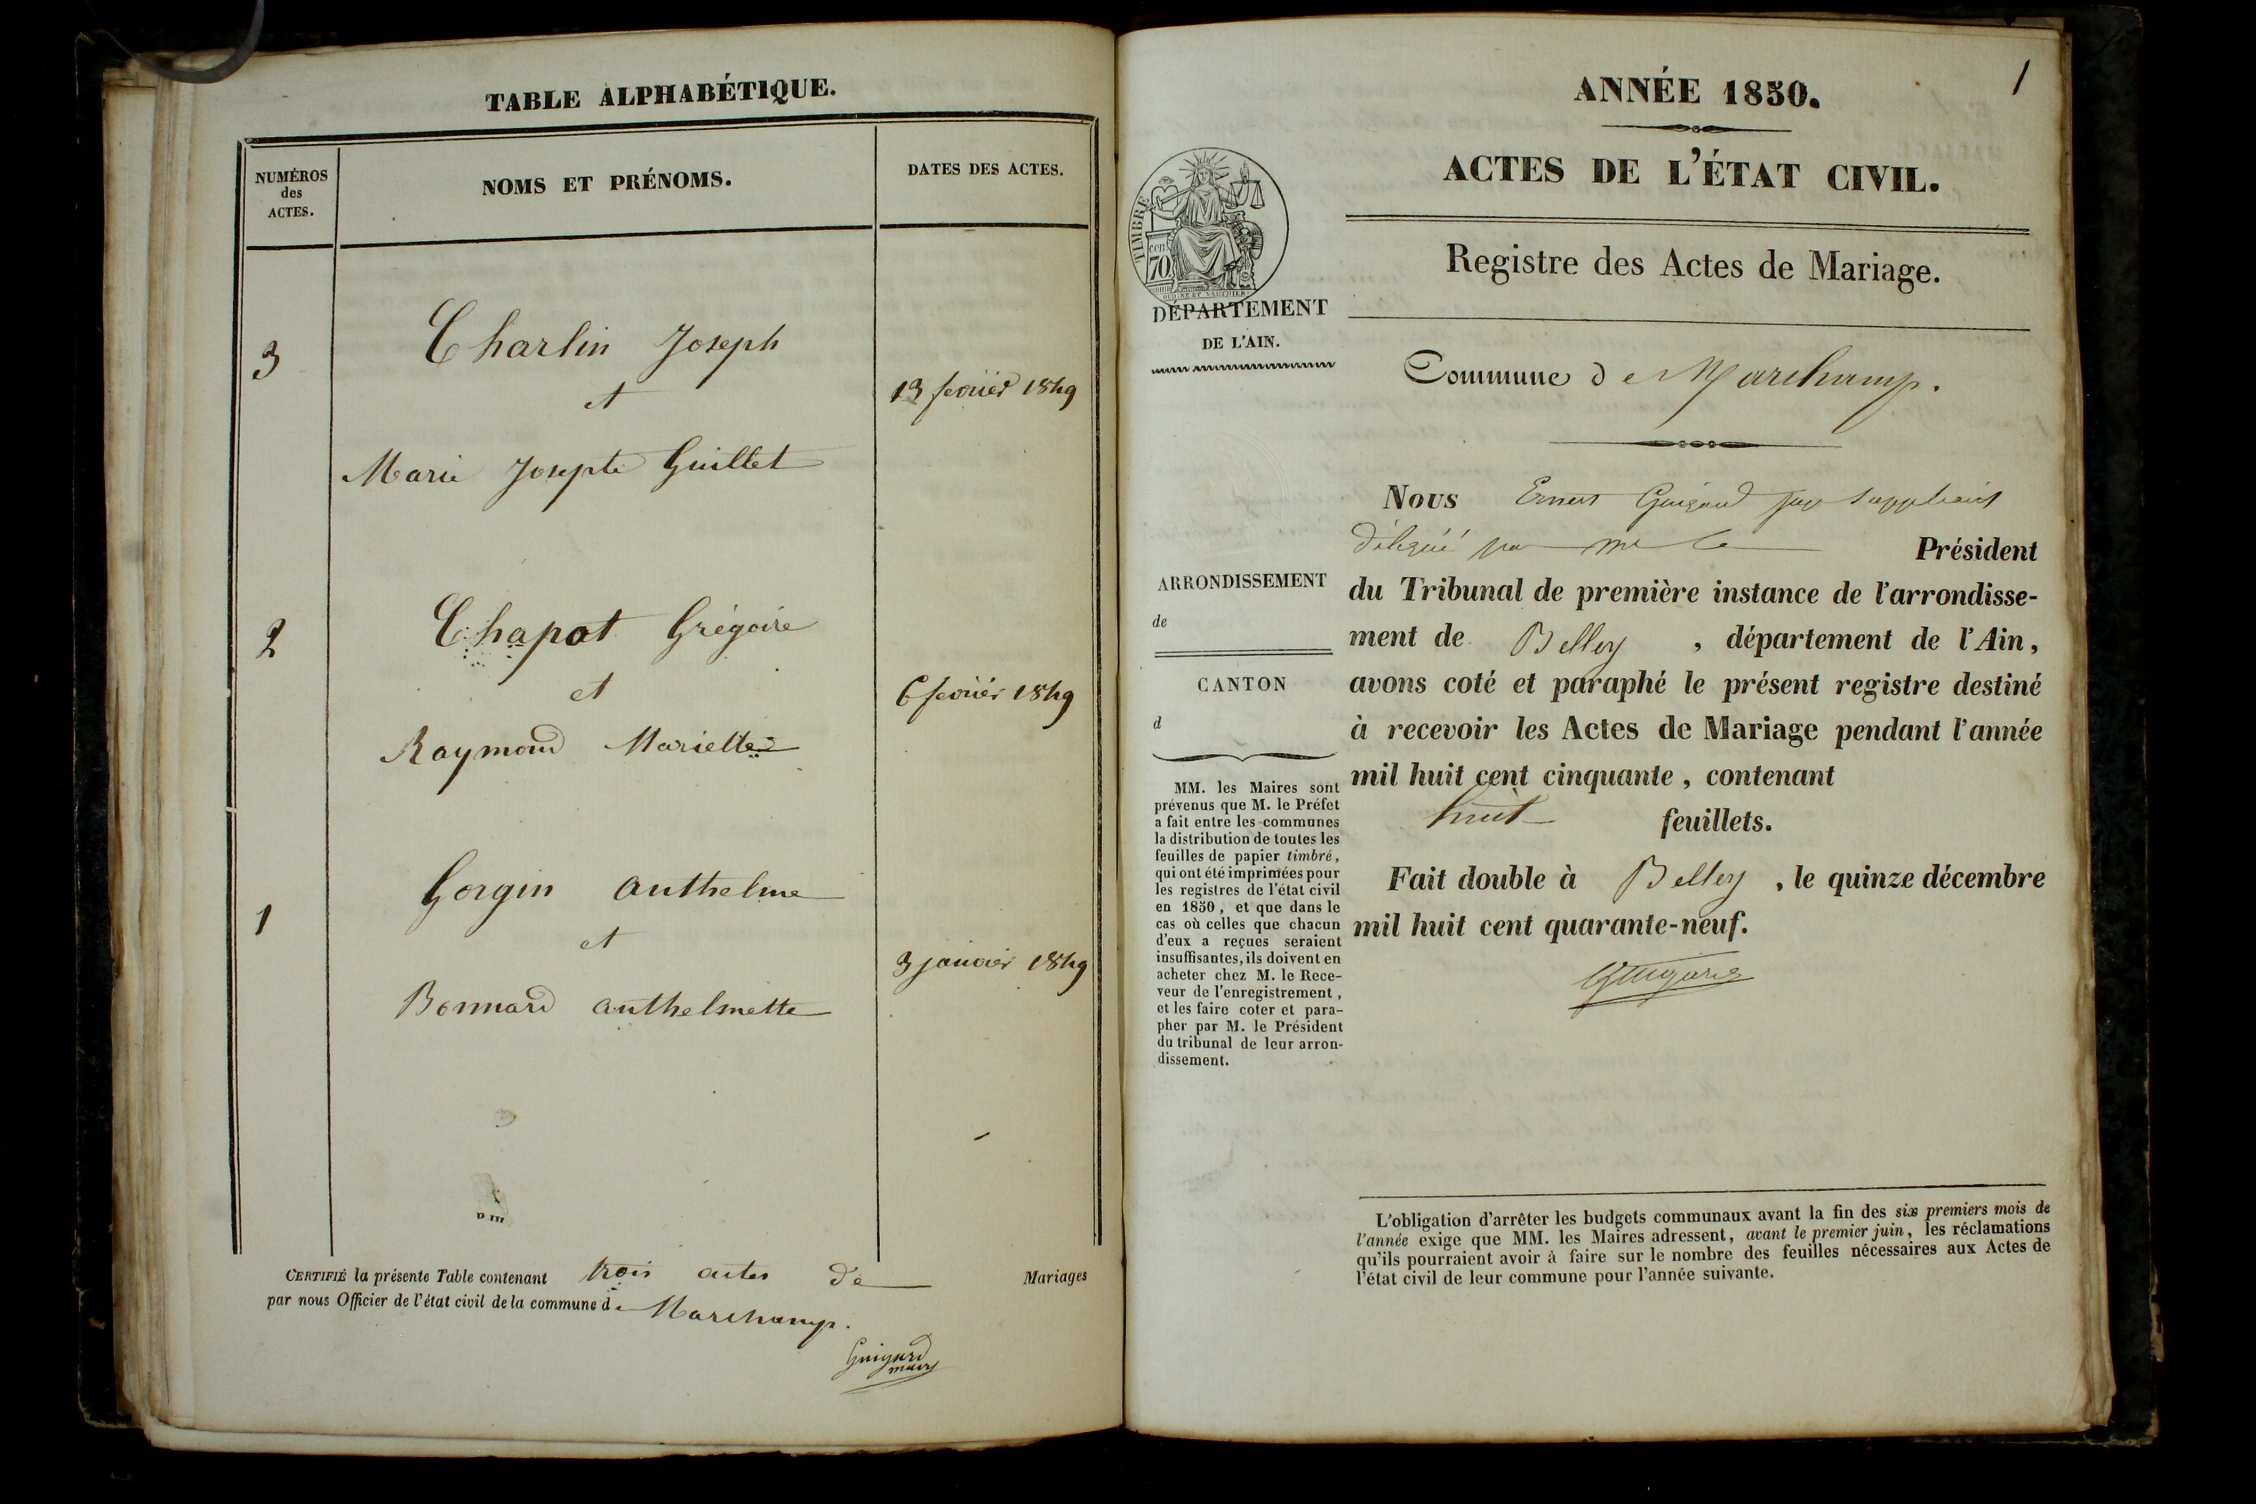 TABLE ALPHABÉTIQUE.
NUMÉROS
des
ACTES.
NOMS ET PRÉNOMS.
DATES DES ACTES.
3
Charlin Joseph
et
13 fevrier 1849
Marie Josephte Guillet
2
Chapot Grégoire
et
6 fevrier 1849
Raymond Mariette
1
Gorgin Anthelme
et
3 janvier 1849
Bonnard Anthelmette
CERTIFIÉ la présente Table contenant trois actes de Mariages
par nous Officier de l'état civil de la commune de Marchamp.
Guigard
maire
1
ANNÉE 1850.
ACTES DE L'ÉTAT CIVIL.
Registre des Actes de Mariage.
TIMBRE
70 cen
DÉPARTEMENT
DE L'AIN.
Commune de Marchamp.
Nous Ernest juge suppléant
délégué par mr le Président
du Tribunal de première instance de l'arrondisse-
ment de Belley, département de l'Ain,
avons coté et paraphé le présent registre destiné
à recevoir les Actes de Mariage pendant l'année
mil huit cent cinquante, contenant
huit feuillets.
Fait double à Belley, le quinze décembre
mil huit cent quarante-neuf.
ARRONDISSEMENT
de
CANTON
d
MM. les Maires sont
prévenus que M. le Préfet
a fait entre les communes
la distribution de toutes les
feuilles de papier timbré,
qui ont été imprimées pour
les registres de l'état civil
en 1850, et que dans le
cas où celles que chacun
d'eux a reçues seraient
insuffisantes, ils doivent en
acheter chez M. le Rece-
veur de l'enregistrement,
et les faire coter et para-
pher par M. le Président
du tribunal de leur arron-
dissement.
L'obligation d'arrêter les budgets communaux avant la fin des six premiers mois de
l'année exige que MM. les Maires adressent, avant le premier juin, les réclamations
qu'ils pourraient avoir à faire sur le nombre des feuilles nécessaires aux Actes de
l'état civil de leur commune pour l'année suivante.